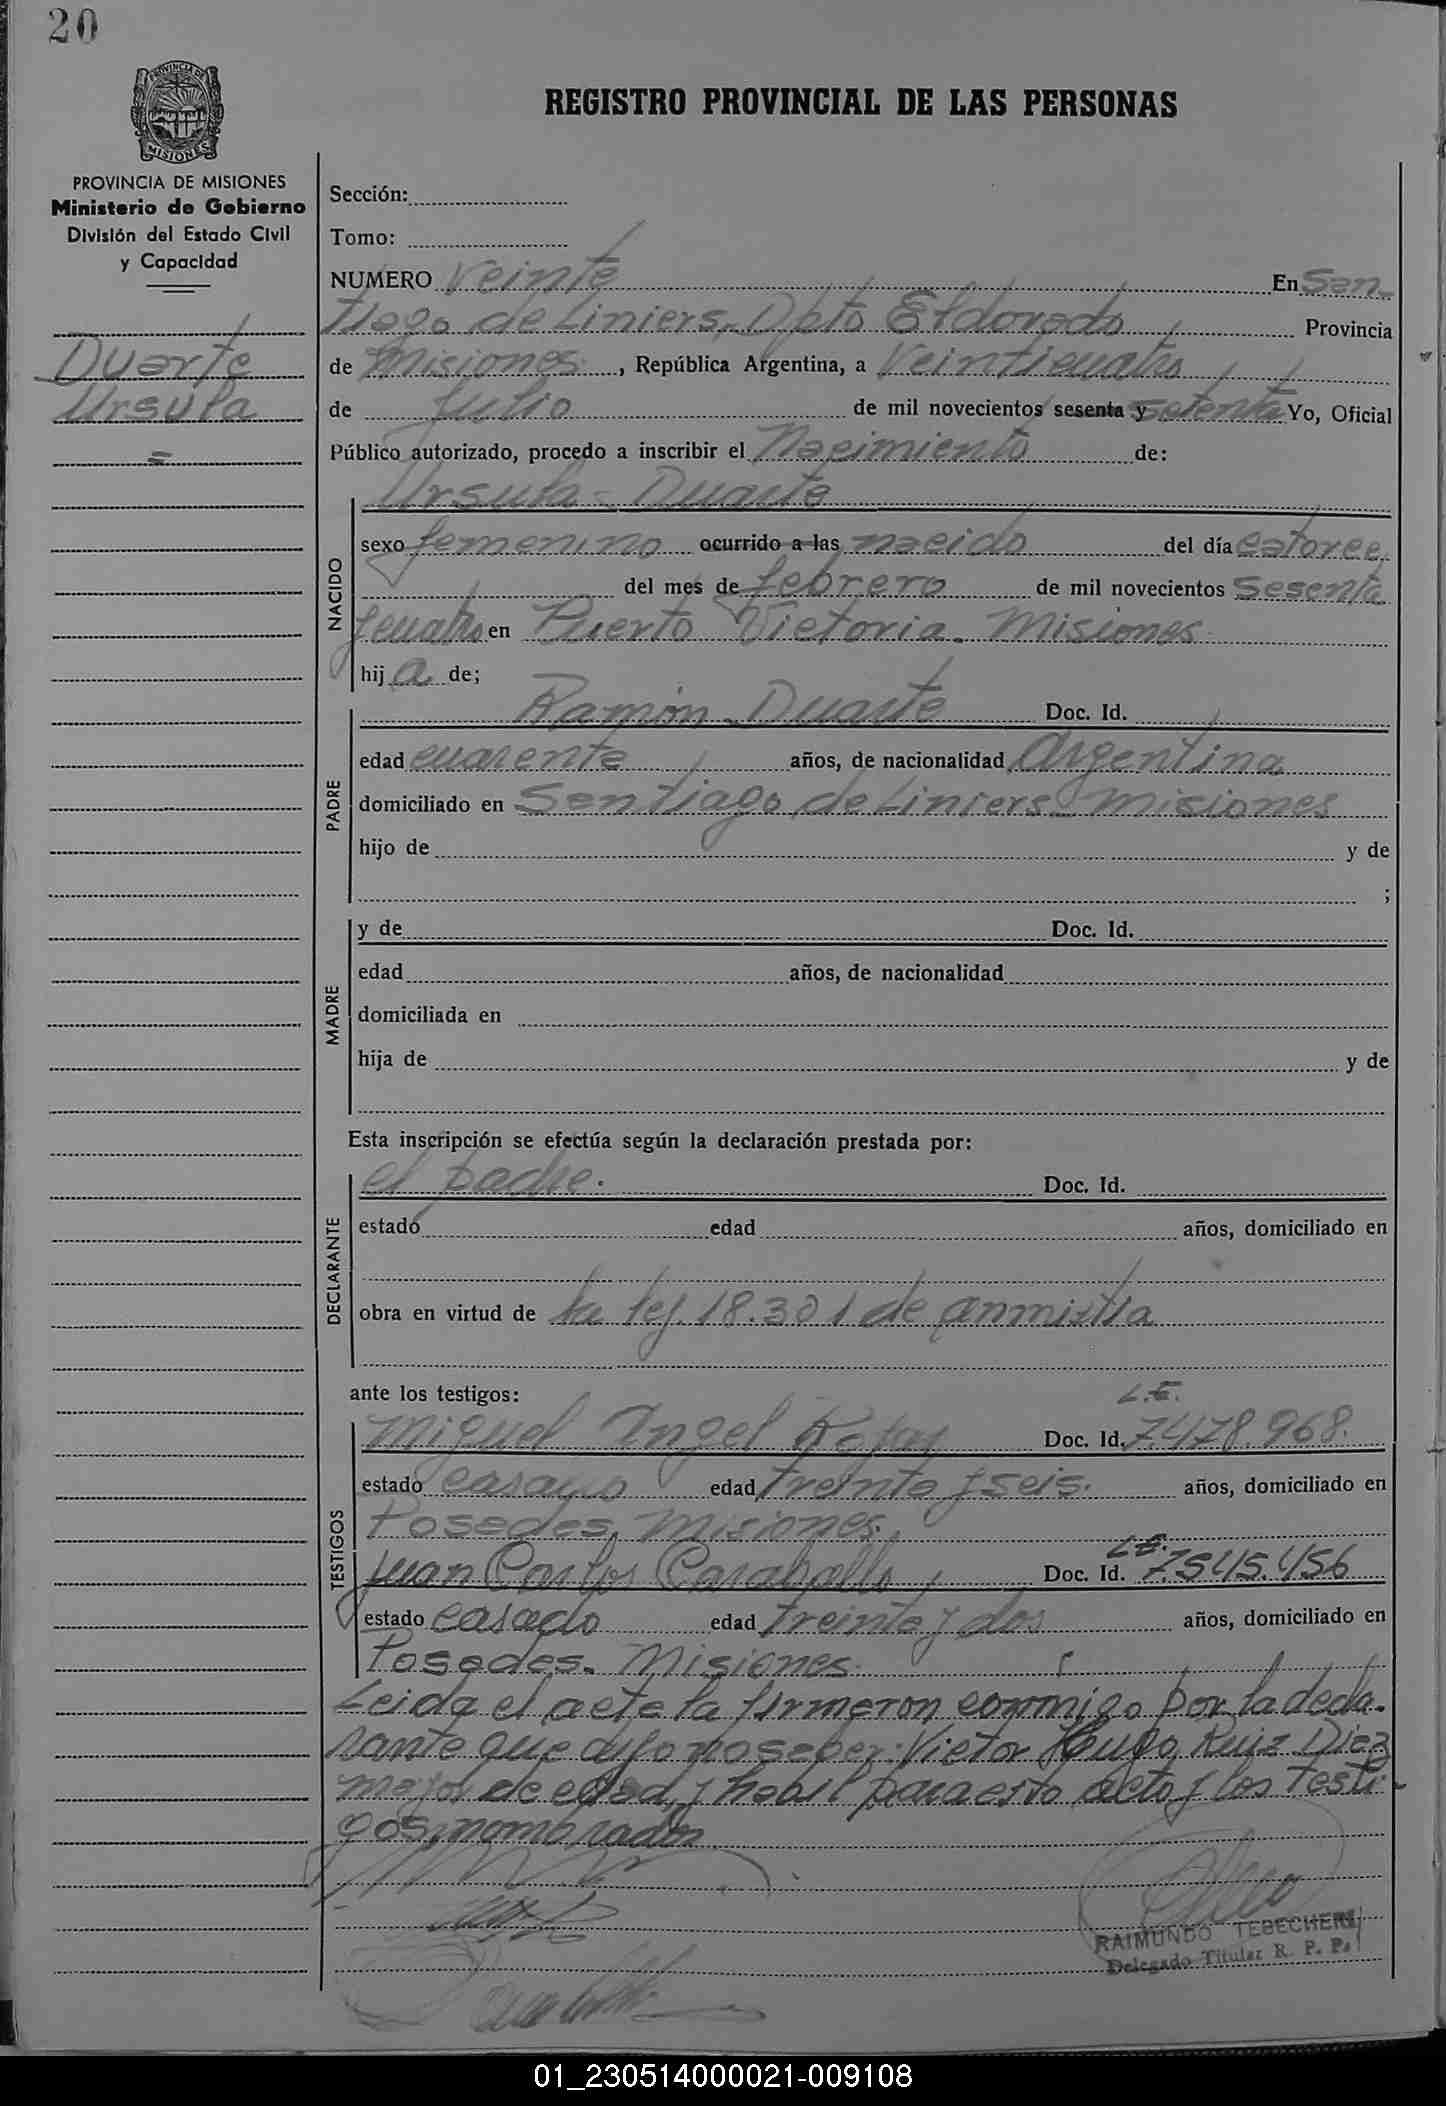 20
PROVINCIA DE MISIONES
REGISTRO PROVINCIAL DE LAS PERSONAS
PROVINCIA DE MISIONES
Ministerio de Gobierno
División del Estado Civil
y Capacidad
Duarte
Ursula
=
Sección:
Tomo:
NUMERO Veinte En San-
tiago de Liniers, Dpto Eldorado, Provincia
de Misiones, República Argentina, a Veinticuatro
de Julio de mil novecientos sesenta y setenta Yo, Oficial
Público autorizado, procedo a inscribir el Nacimiento de:
Ursula - Duarte
NACIDO
sexo femenino ocurrido a las nacido del día catorce
del mes de febrero de mil novecientos sesenta
y cuatro en Puerto Victoria. Misiones
hij a de;
PADRE
Ramón Duarte Doc. Id.
edad cuarenta años, de nacionalidad Argentina
domiciliado en Santiago de Liniers Misiones
hijo de y de
;
MADRE
y de Doc. Id.
edad años, de nacionalidad
domiciliada en
hija de y de
Esta inscripción se efectúa según la declaración prestada por:
DECLARANTE
el padre. Doc. Id.
estado edad años, domiciliado en
obra en virtud de la ley. 18.301 de anmistia
ante los testigos:
TESTIGOS
L.E.
Miguel Angel Rojas Doc. Id. 7.478.968.
estado casado edad treinta y seis. años, domiciliado en
Posadas, Misiones.
L.E.
Juan Carlos Caraballo Doc. Id. 7.545.456
estado casado edad treinta y dos años, domiciliado en
Posadas. Misiones.
Leida el acta la firmaron conmigo por la decla-
rante que dijo no saber. Victor Hugo Ruiz Diaz
mayor de edad, y habil para esto acto y los testi-
gos nombrados
RAIMUNDO TEBECHERI
Delegado Titular R. P. P.
01_230514000021-009108